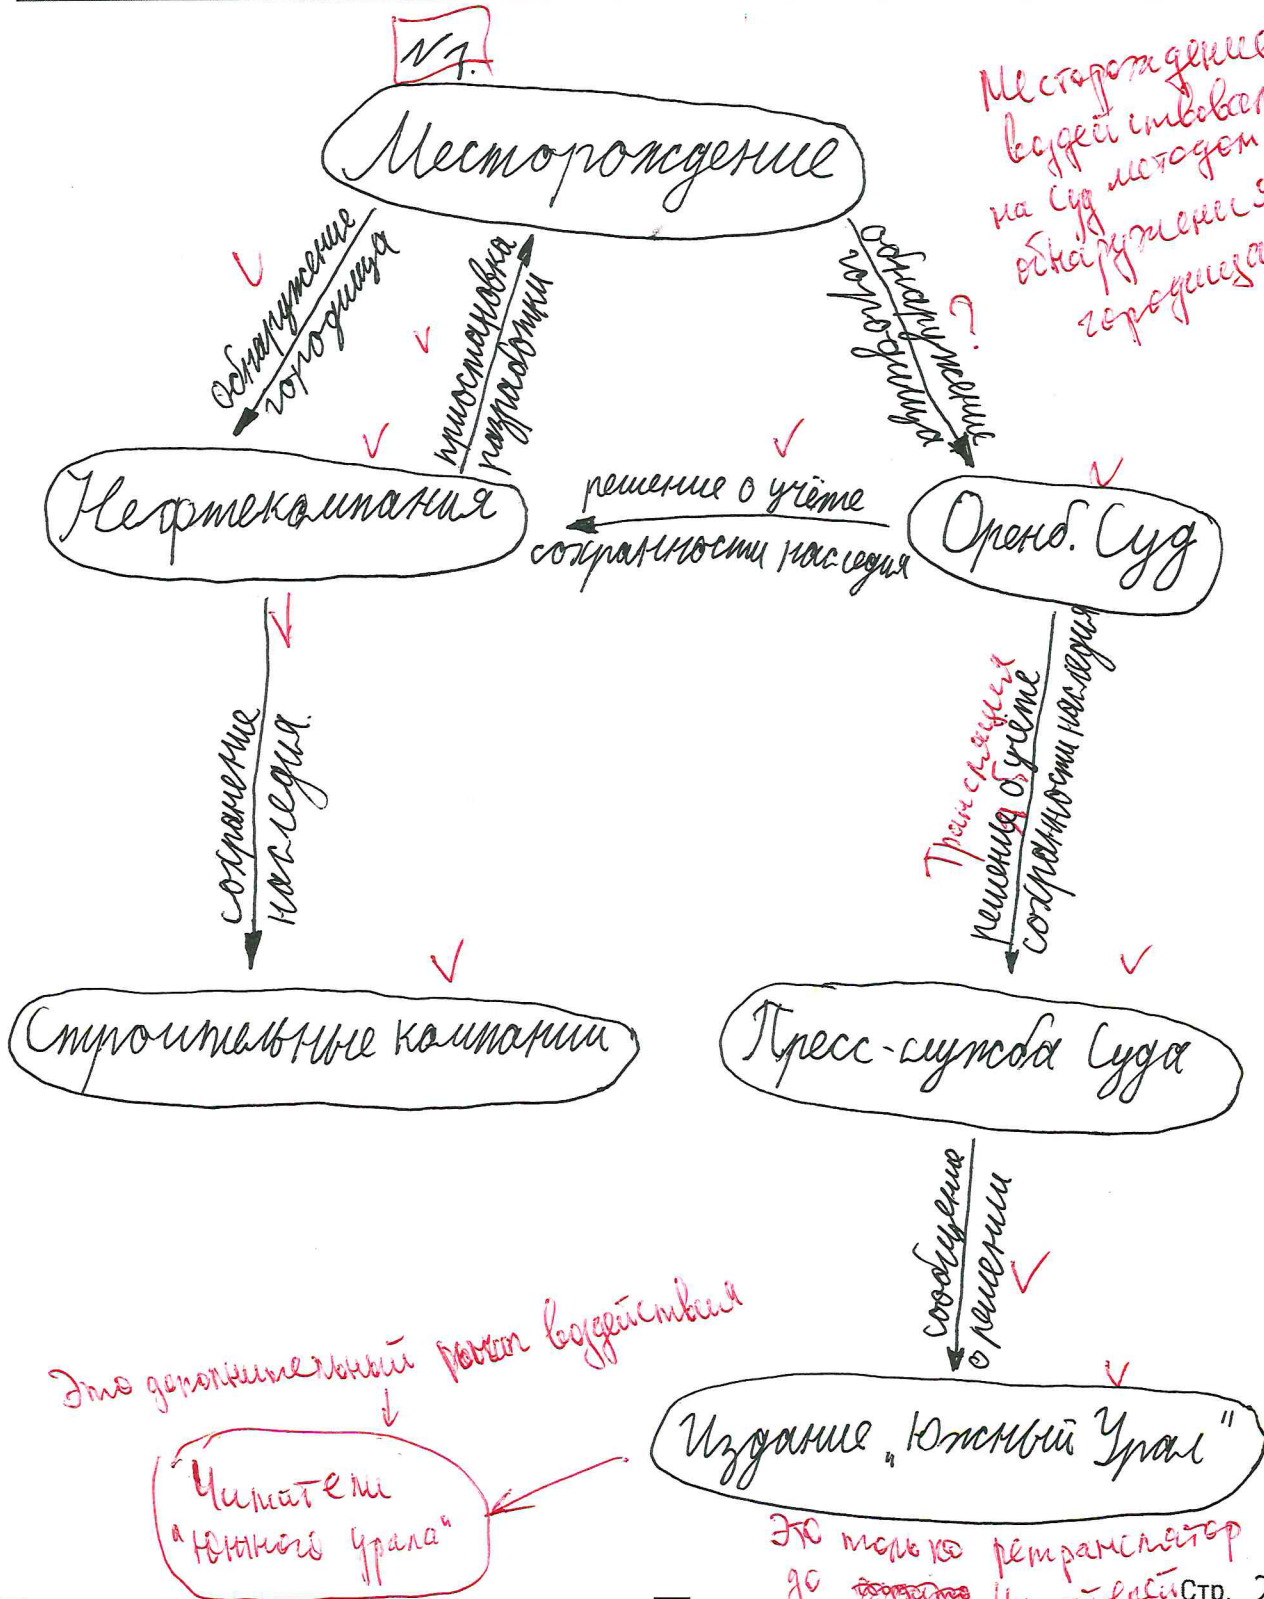 № 1.
Месторождение
Месторождение
воздействовал
на суд методом
обнаружения
городища
обнаружение
городища
приостановка
разработки
обнаружение
городища
?
Нефтекомпания
решение о учёте
сохранности наследия
Оренб. Суд
сохранение
наследия.
Трансляция
решения об учёте
сохранности наследия
Строительные компании
Пресс-служба Суда
сообщение
о решении
Это дополнительный рычаг воздействия
Издание „Южный Урал"
Читатели
"Южного Урала"
Это только ретранслятор
до
Стр.